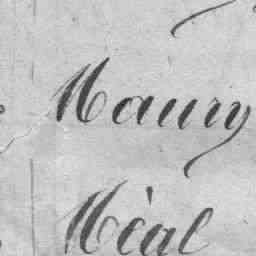 Maury
Méal